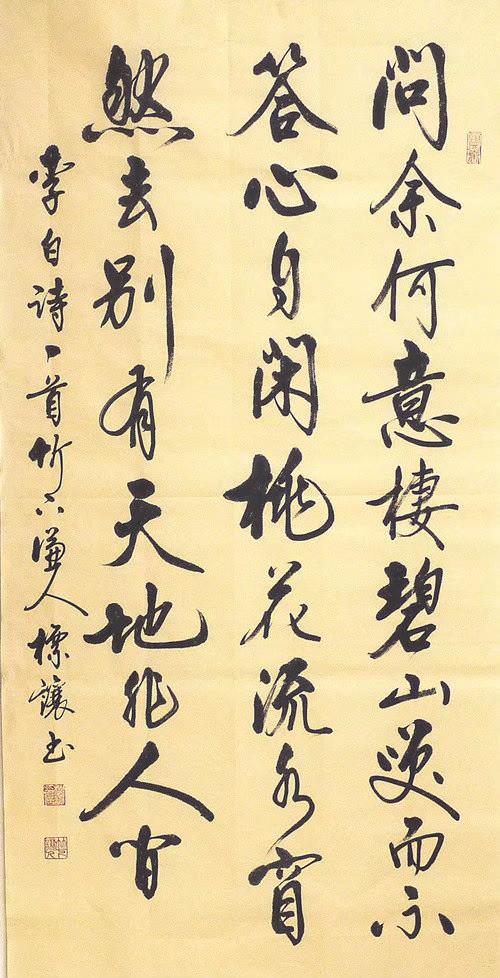 問余何意棲碧山笑而不
答心自閑桃花流水窅
然去別有天地非人间
李白詩一首竹下谦人標讓书